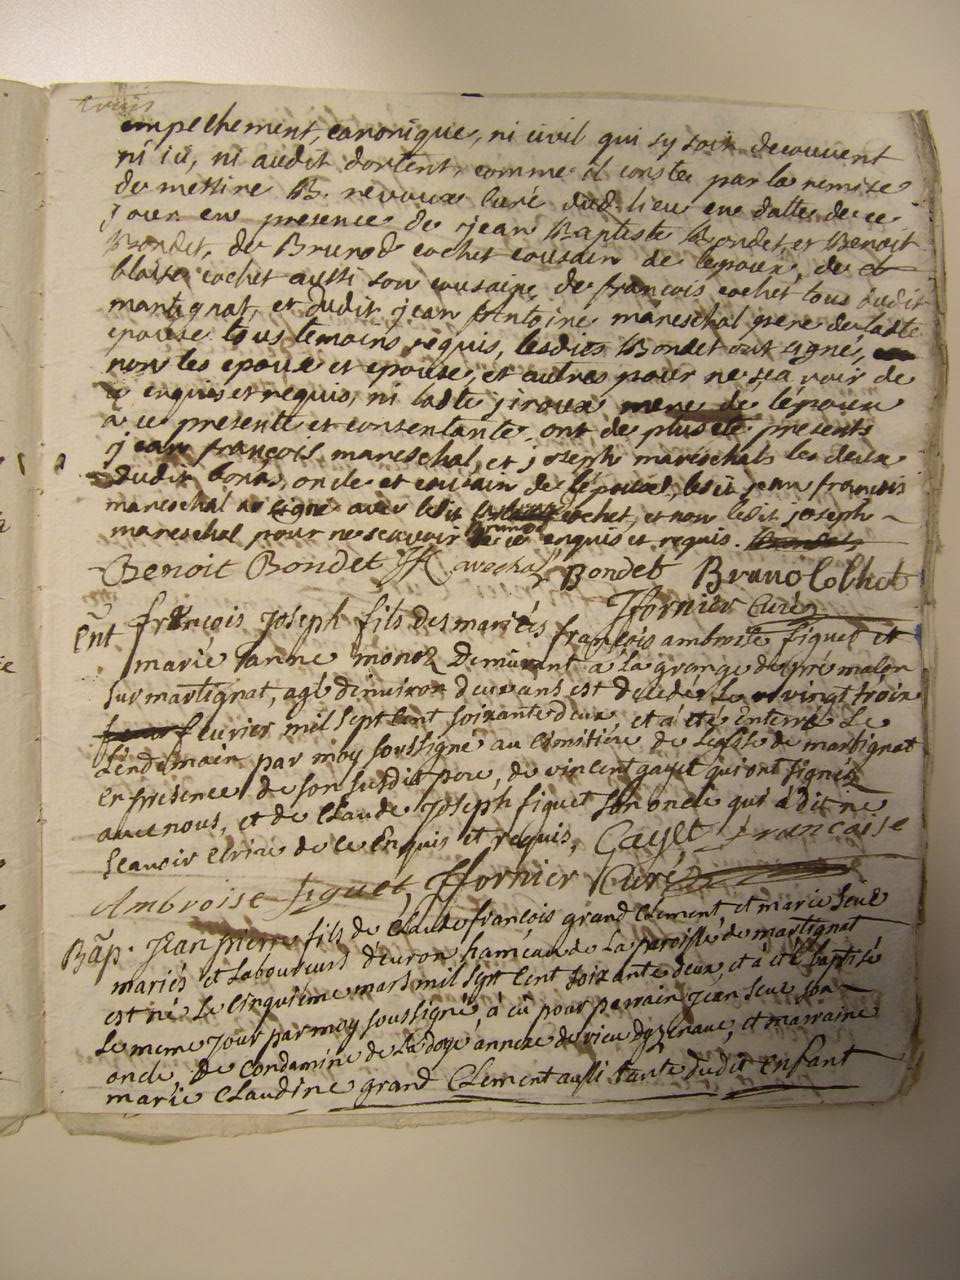 empechement, canonique, ni civil qui sy soit decouvert
ni ici, ni audit dortent, comme il conste par la remise
de messire B. revoux curé dud. lieu en datte de ce
jour en presence de jean Baptiste Bondet, et Benoit
Bondet, de Brunod cochet cousain de lepoux, de
blaise cochet aussi son cousain, de françois cochet tous dudit
martignat, et dudit jean Antoine mareschal pere de ladte
epouse tous temoins requis, lesdits Bondet ont signé,
non les epoux et epouse, et autres pour ne sca voir de
ce enquis et requis, ni ladte jiroux mere de lepoux
a ce presente et consentante, ont de plus eté presents
jean françois mareschal, et joseph mareschal les deux
dudit bonas, oncle et cousain de lepouse, ledit jean francois
mareschal a signé avec ledit brunod cochet, et non ledit joseph
mareschal pour ne scavoir de ce enquis et requis.
Benoit Bondet JF mareschal Bondet Bruno Cochet
Jfornier Curé
Ent françois joseph fils des mariés françois ambroise figuet et
marie anne monoz demurant à la grange de pré malon
sur martignat, agé d'environ deux ans est decedé le vingt trois
fevrier mil sept cent soixante deux, et a été enterré le
Lendemain par moy soussigné au cimitiere de Leglise de martignat
en présence de son susdit pere, de vincent gayet qui ont signéz
avec nous, et de Claude joseph figuet son oncle qui a dit ne
scavoir ecrire de ce enquis et requis, Gayet françoise
Ambroise figuet Jfornier Curé
Bap. Jean pierre fils de Claude françois grand clement, et marie seue
mariés et laboureurs d'evron hameau de La paroisse de martignat
est né le cinquième mars mil sept cent soixante deux, et a été baptisé
Le meme jour par moy soussigné, a eu pour parrain jean seue son
oncle, de condamine de La doye annexe de vieu d'yzenave, et marraine
marie claudine grand Clement aussi tante dudit enfant